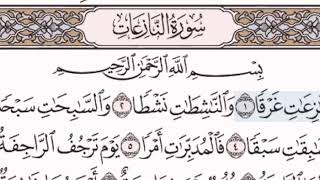 سُورَةُ النَّازِعَاتِ
بِسْمِ اللَّهِ الرَّحْمَٰنِ الرَّحِيمِ
غَرْقًا ١ وَالنَّاشِطَاتِ نَشْطًا ٢ وَالسَّابِحَاتِ سَبْحًا
سَبْقًا ٤ فَالْمُدَبِّرَاتِ أَمْرًا ٥ يَوْمَ تَرْجُفُ الرَّاجِفَةُ